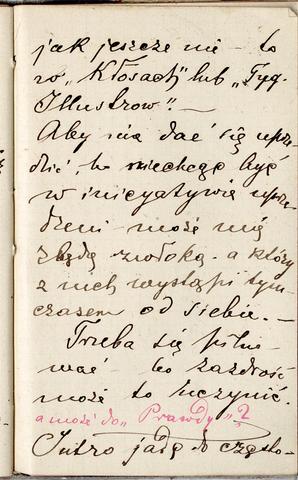 jak jeszcze nie – to
w „Kłosach” lub „Tyg.
Illustrow”. –
Aby nie dać się uprze-
dzić, bo niechcąc być
w inicyatywie uprze-
dzeni – może mię
zbędą zwłoką – a który
z nich wystąpi tym-
czasem od siebie. –
Trzeba się pilno-
wać – bo zazdrość
może to uczynić.
a może do „Prawdy”?
Jutro jadę do Często-